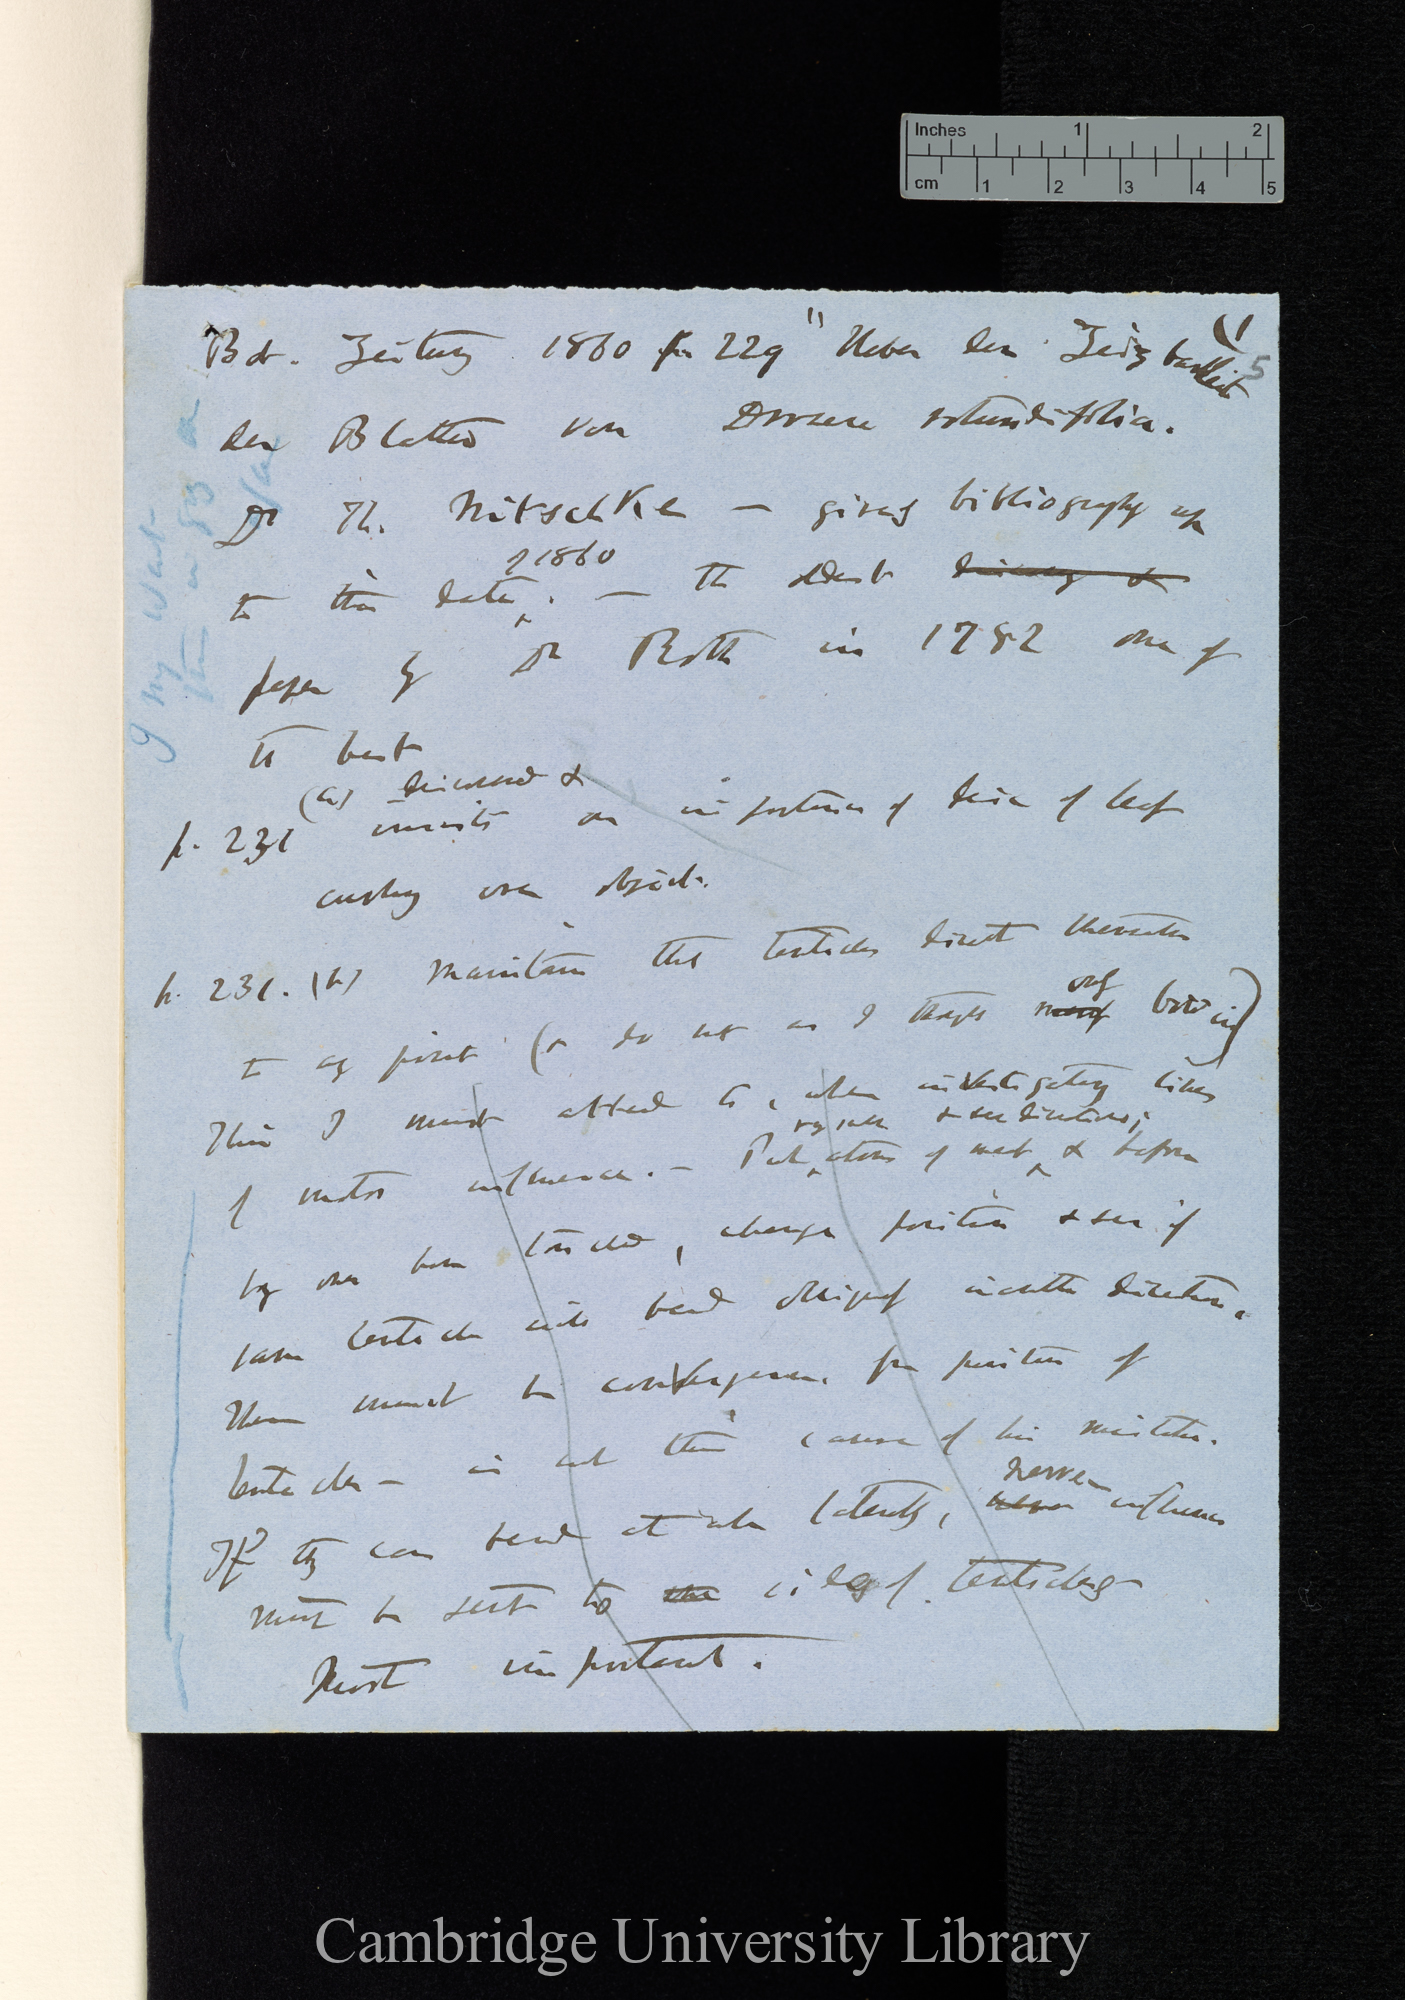 Inches 1 2
cm 1 2 3 4 5
(1
5
Bot. Zeitung 1860 p 229 "Ueber den Reizbarkeit
der Blatter von Drosera rotundifolia.
Dr Th. Nitschke — gives bibliography up
of 1860
to this date. — The oldest
paper by Dr Roth in 1782 one of
the best
(a) discovered &
p. 231 insists on importance of disc of leaf
curling over object.
p. 231. (b) Maintains that tentacles direct themselves
only
to any point (& do not as I thought merely bow in)
This I must attend to, when investigating lines
raw & see directions;
of motor influence. — Put atoms of meat & before
hy one have touched, change position & see if
same tentacle will bend obliquely in other direction.
There must be convergence from position of
tentacles — is not this cause of his mistake.
nerve
If they can bend at all laterally, influence
must be sent to the side of tentacles
Most important.
I my want
them
Cambridge University Library